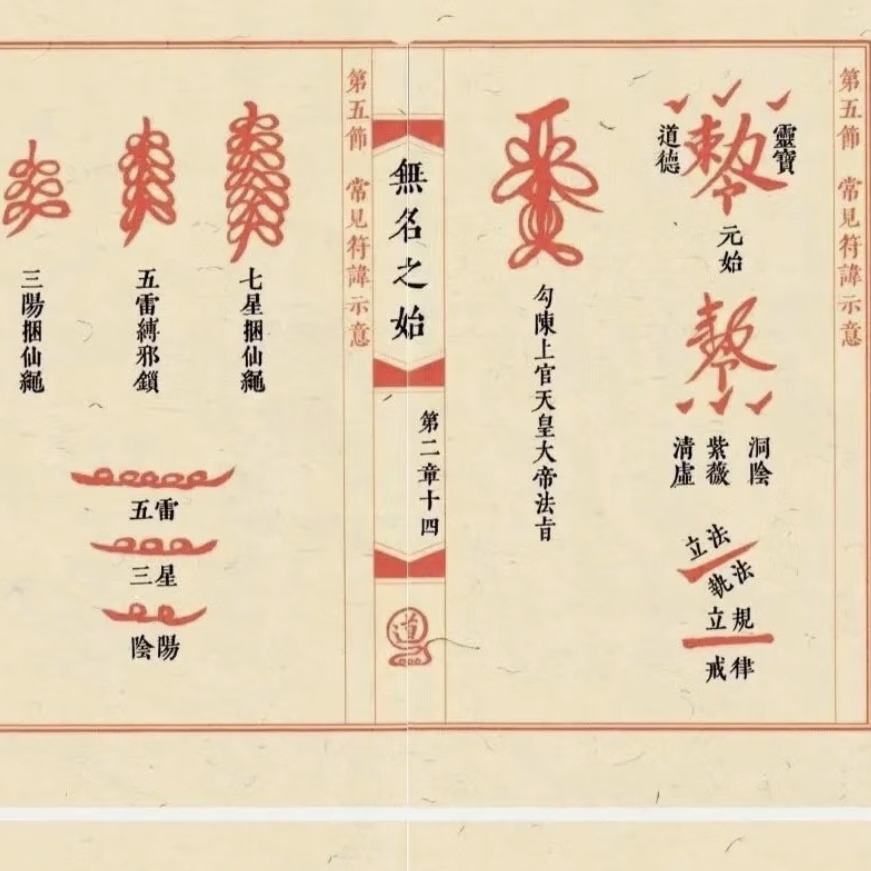 第五節 常見符諱示意
靈寶
道德
元始
洞陰
紫薇
清虛
立法
執法
立規
戒律
勾陳上官天皇大帝法旨
無名之始
第二章十四
道
第五節 常見符諱示意
七星捆仙繩
五雷縛邪鎖
三陽捆仙繩
五雷
三星
陰陽